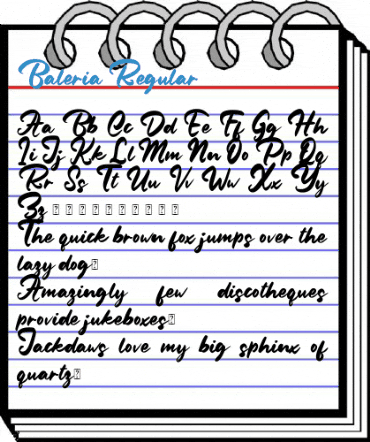 Baleria Regular
Aa Bb Cc Dd Ee Ff Gg Hh
Ii Jj Kk Ll Mm Nn Oo Pp Qq
Rr Ss Tt Uu Vv Ww Xx Yy
Zz
The quick brown fox jumps over the
lazy dog
Amazingly few discotheques
provide jukeboxes
Jackdaws love my big sphinx of
quartz